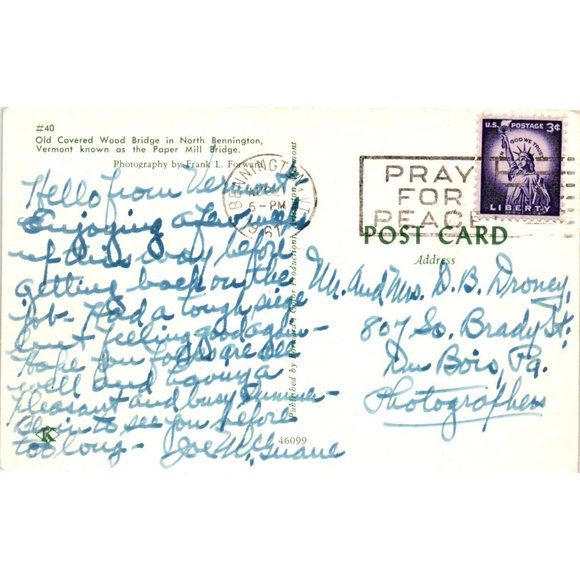 #40
Old Covered Wood Bridge in North Bennington,
Vermont known as the Paper Mill Bridge.
Photography by Frank L. Forward
U.S. POSTAGE 3¢
IN GOD WE TRUST
LIBERTY
BENNINGTON
5-PM
61
PRAY
FOR
PEACE
POST CARD
Address
Hello from Vermont
Enjoying a few
up this way before
getting back on the
job - Had a tough siege
but feeling good again -
Hope you folks are
well and having a
pleasant and busy summer -
to see you before
too long - Joe McGuane
Mr. and Mrs. D. B. Droney,
807 So. Brady St.
Du Bois, Pa.
Photographers
Published by Color Productions, Vermont
K
46099